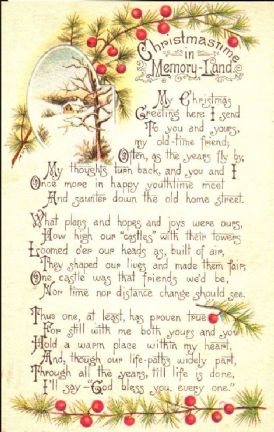 Christmastime
in
Memory-Land.
My Christmas
Greeting here I send
To you and yours,
my old-time friend;
Often, as the years fly by,
My thoughts turn back, and you and I
Once more in happy youthtime meet
And saunter down the old home street.
What plans and hopes and joys were ours,
How high our "castles" with their towers
Loomed o'er our heads as, built of air,
They shaped our lives and made them fair;
One castle was that friends we'd be,
Nor time nor distance change should see.
Thus one, at least, has proven true
For still with me both yours and you
Hold a warm place within my heart.
And, though our life-paths widely part,
Through all the years, till life is done,
I'll say—"God bless you, every one."